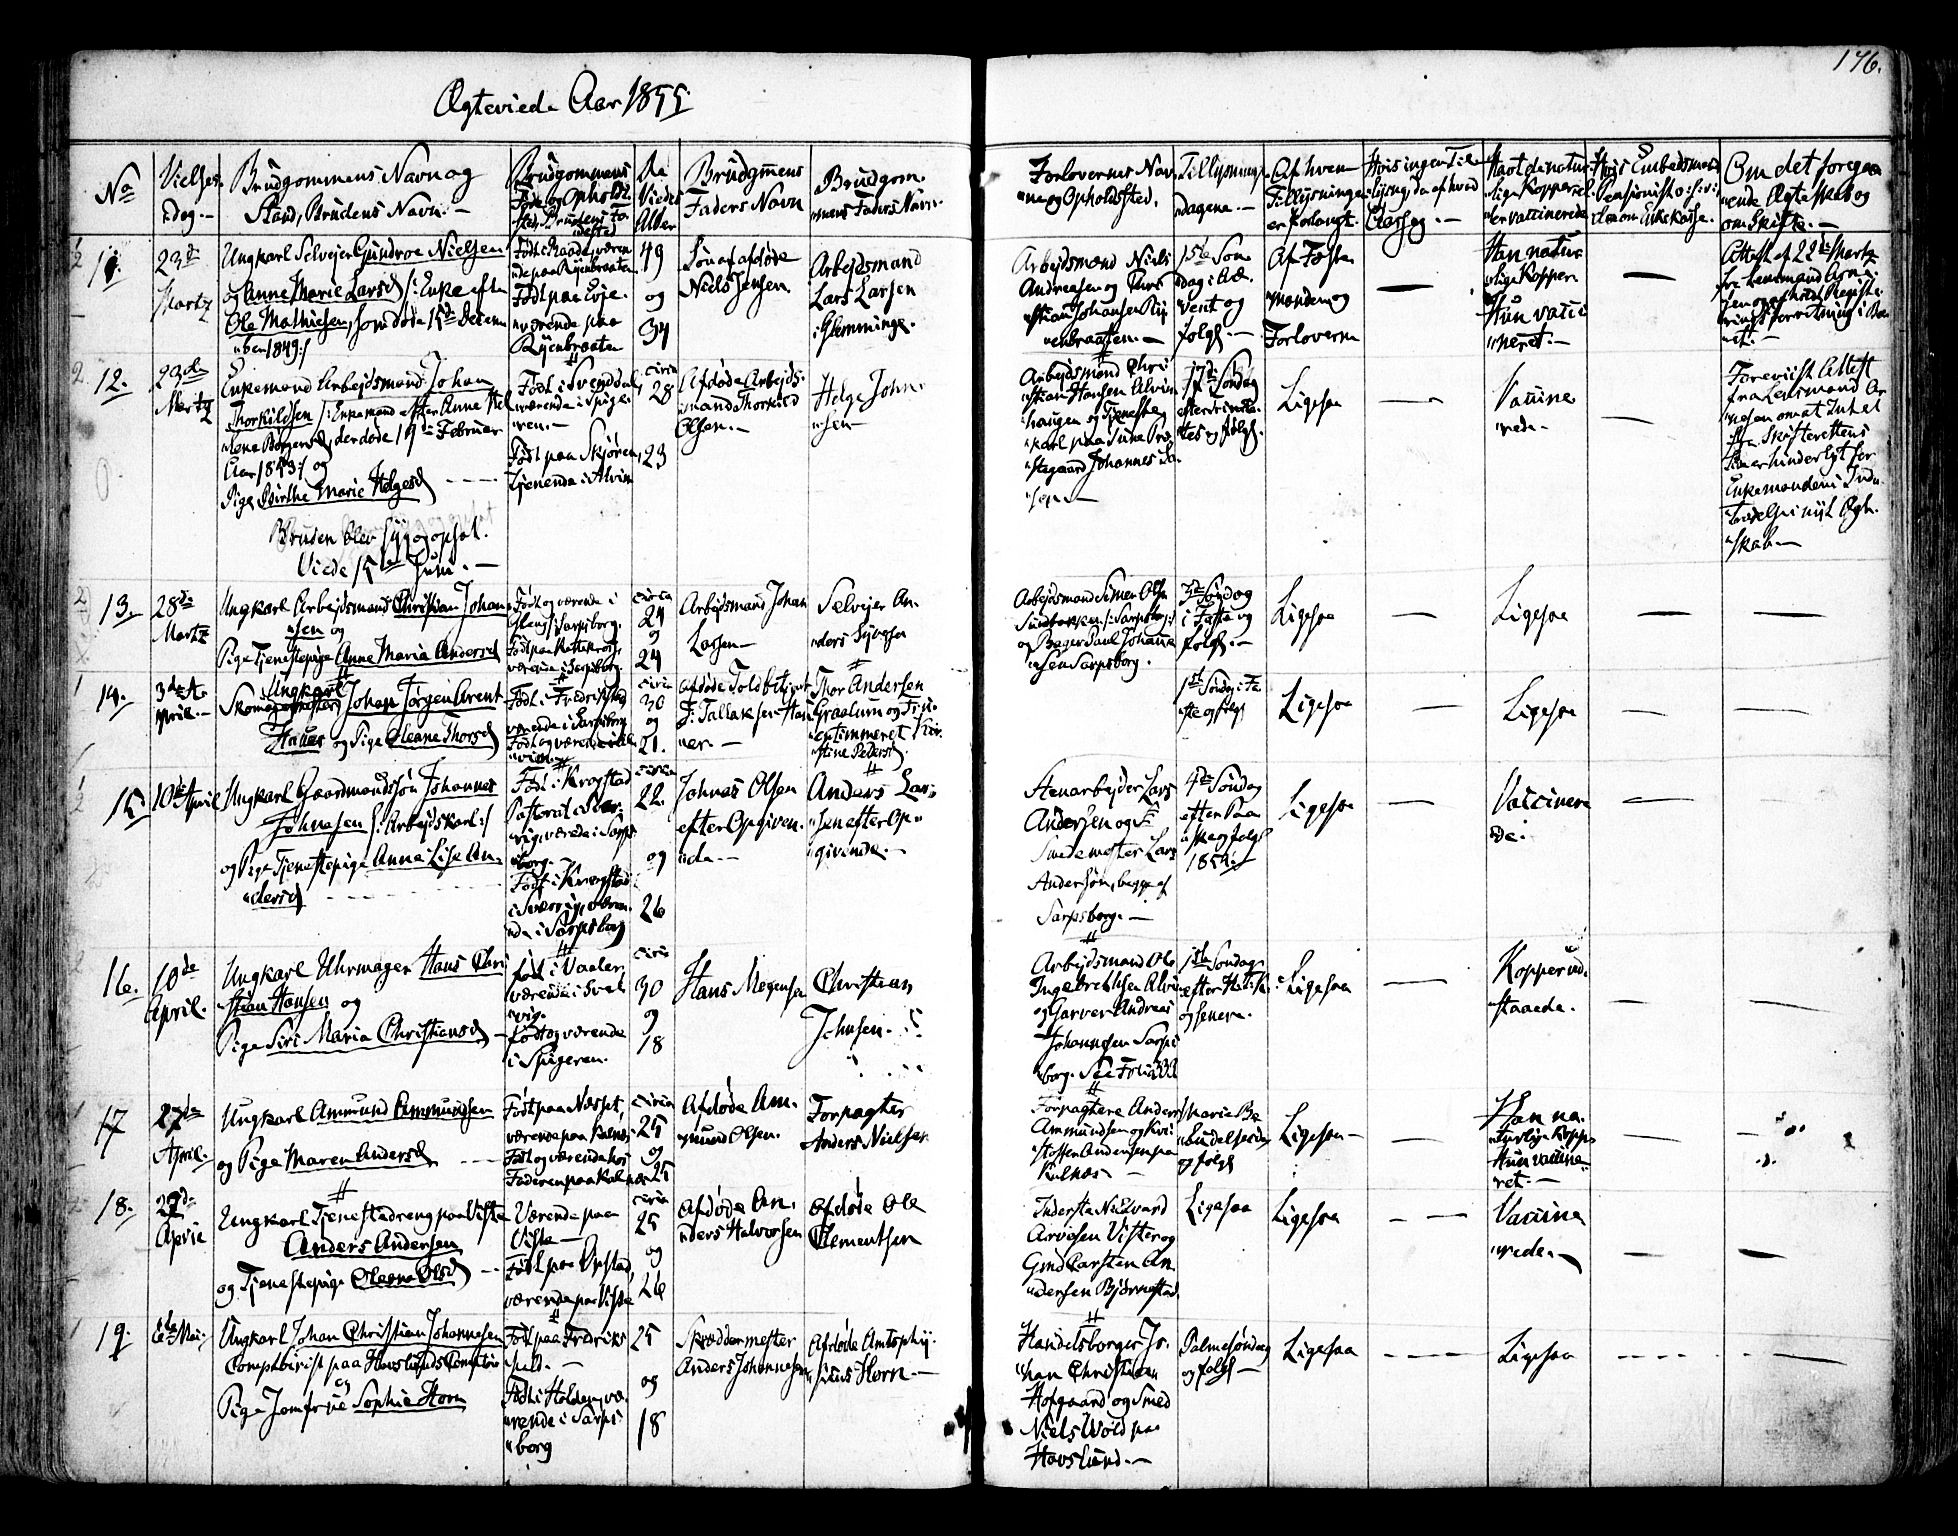 176.
Ægteviede Aar 1855
No
Vielses-
dag.
Brudgommens Navn og
Stand, Brudens Navn.
Brudgommens
Føde og Opholds
sted, Brudens Fø
dested
De
Viedes
Alder
Brudgmens
Faders Navn
Brudgom
mens Faders Navn.
Forlovernes Nav
ne og Opholdsted.
Tillysnings
dagene.
Af hvem
Tillysningen
er forlangt.
Hvis ingen Til
lysning, da af hvad
Aarsag.
Havt de natur
lige Kopper el
ler vaccinerede
Hvis Embedsmænd
Pensionist o: s: v:
Om det foregaa
ende Ægteskab og
om Skifte.
11.
23de
Martz
Ungkarl Selvejer Gundroe Nielsen
og Anne Marie Larsd /: Enke efter
Ole Mathiesen, som døde 15de Decem
ber 1849:/
Født i Raade, være
nde paa Ryenbraaten
Født paa Evje.
værende paa
Ryenbraaten
49
og
34
Søn af afdøde
Niels Jensen.
Arbejdsmand
Lars Larsen
i Glemminge.
Arbejdsmænd Niels
Andreasen og Chri
stian Johansen Ry
enbraaten.
1ste Søn
dag i Ad
vent og
følg.
Af Fæste
manden og
Forloverne
Han natur
lige Kopper
Hun vacci
neret.
Attest af 22de Martz
fra Lensmand Arne
sen
12.
23de
Martz
Enkemand Arbejdsmand Johan
Thorkildsen /: Enkemand efter Anne Hel
lene Borgersd, der døde 19de Februar
Aar 1853:/ og
Pige Birthe Marie Helgesd
Bruden blev syg og opsat.
Viede 15de Juni.
Født i Svenddal,
værende i Spige
ren.
Født paa Skjøren,
tjenende i Alvim
circa
28
23
Afdøde Arbejds
mand Thorkild
Olsen.
Helge John
sen
Arbejdsmænd Chri
stian Hansen Alvim
haugen og Tjeneste
karl paa Tune Præ
stegaard Johannes La
sen
17de Søndag
efter Trinita
tes og følg.
Ligesaa
Vaccine
rede.
Foreviist Attest
fra Lensmand Ar
nesen om at Intet
fra Skifterettens
Side er hinderligt for
Enkemanden i Ind
trædelse i nyt Ægte
skab.
13.
28de
Martz
Ungkarl Arbejdsmand Christian Johan
sen og
Pige Tjenestepige Anne Maria Andersd
Født og værende i
Gleng i Sarpsborg.
værende i Sarpsborg.
circa
24
og
24
Arbejdsmand Johan
Larsen
Selvejer An
ders Syversen
Arbejdsmand Simen Olsen
Sundløkken /: Sarpsborg :/
og Bager Paul Johanne
sen Sarpsborg.
3de Søndag
i Faste og
følg.
Ligesaa
Ligesaa
14.
3de A
pril.
Ungkarl
Skomagermester Johan Jørgen Arent
Hauer og Pige Oleane Thorsd
Født i Fredrikstad
værende i Sarpsborg
Født og værende i Al
vim.
circa
30
og
21.
Afdøde Toldbetjent
F: Tallaksen Hau
er.
Thor Andersen
Graalum og Fru
entimmeret Kir
stine Pedersd.
1ste Søndag i Fa
ste og følg
Ligesaa
Ligesaa
15
10de April
Ungkarl Gaardmandssøn Johannes
Johnasen /: Arbejdskarl :/
og Pige Tjenestepige Anna Lise An
dersd
Født i Krogstad
Pastorat i Sver
rig, værende i Sarps
borg.
Født i Krogstad
i Sverrig, være
nde i Sarpsborg
circa
22.
og
26
Johnas Olsen
efter Opgiven
de.
Anders Lar
sen efter Op
givende.
Stenarbejder Lars
Andersen og
Smedemester Lars
Andersøn, begge af
Sarpsborg.
4de Søndag
efter Paa
ske og følg
1854.
Ligesaa
Vaccinere
de.
16.
10de
April.
Ungkarl Uhrmager Hans Chri
stian Hansen og
Pige Siri Maria Christiansd
Født i Vaaler,
værende i Svel
vig.
Født og værende
i Spigeren.
circa
30
og
18
Hans Mogensen
Christian
Johnsen.
Arbejdsmand Ole
Ingebrethsen Alvim
og Garver Andreas
Johannesen Sarps
borg. See Folio
1ste Søndag
efter Hellig 3
og senere.
Ligesaa
Kopper ud
staaede.
17
27de
April.
Ungkarl Ammund Ammundsen
og Pige Maren Andersd
Født paa Næsset,
værende paa Kalnæs
Født og værende hos
Faderen paa Kalnæs
circa
25
og
25
Afdøde Am
mund Olsen.
Forpagter
Anders Nielsen
Forpagtere Anders
Ammundsen og Kri
stoffer Andersen paa
Kalnæs
Marie Be
budelsesdag
og følg
Ligesaa
Han na
turlige Kopper
Hun vaccine
ret.
18.
27de
April
Ungkarl Tjenestedreng paa Viste
Anders Andersen
og Tjenestepige Oleana Olsd
Værende paa
Viste
Født paa Opstad,
værende paa Viste
circa
25
og
26
Afdøde An
ders Halvorsen
Afdøde Ole
Clementsen
Inderste Nielvard
Arvesen Vister og
Gmd Carsten An
dersen Bjørnstad
Ligesaa
Ligesaa
Vaccine
rede.
19.
6de Mai.
Ungkarl Johan Christian Johannesen
Comptoirist paa Hovslunds Comptoir
og
Pige Jomfrue Sophie Horn
Født paa Fredriks
hald.
Født i Holden, væ
rende i Sarps
borg
25
og
18
Skræddermester
Anders Johannesen
Afdøde Amtsphy
sicus Horn.
Handelsborger Jo
han Christian
Hofgaard og Smed
Niels Wold paa
Hovslund.
Palmesøndag
og følg
Ligesaa
Ligesaa